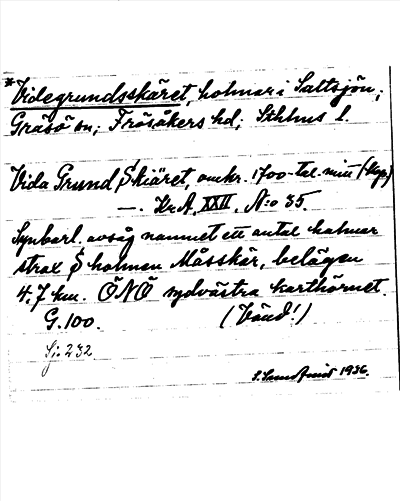 *Videgrundsskäret, holmar i Saltsjön;
Gräsö sn; Frösåkers hd; Sthlms l.
Vida Grund Skiäret, omkr. 1700-tal. mitt (kop.)
—. Kr A, XXII, N:o 35.
Synbarl. avsåg namnet ett antal holmar
strax S holmen Måsskär, belägen
4.7 km. ÖNÖ sydvästra karthörnet.
G. 100. (Vänd!)
Sj: 232
S. Landtmanson 1936.